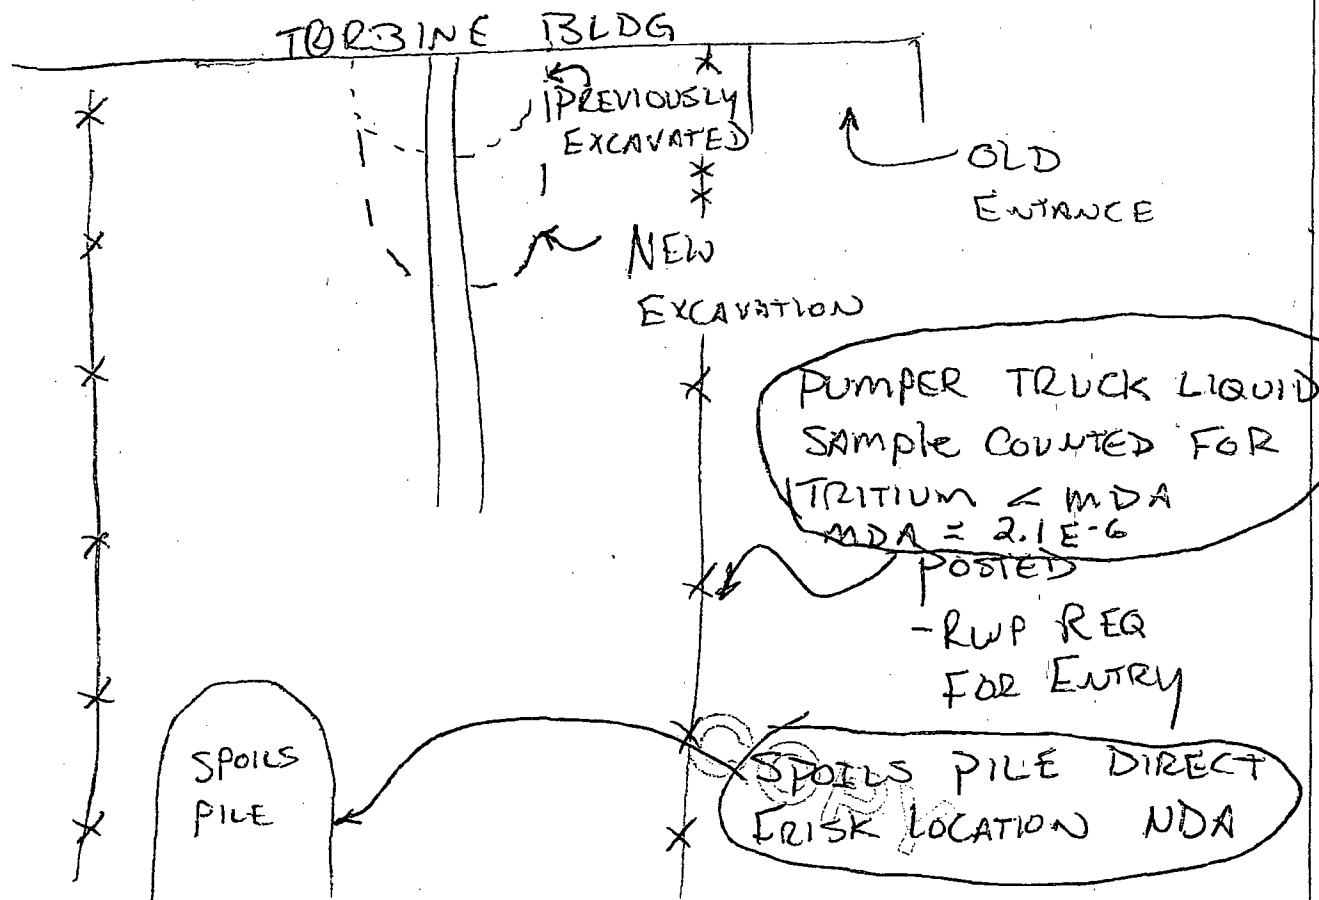 TORBINE BLDG
PREVIOUSLY
EXCAVATED
OLD
ENTANCE
NEW
EXCAVATION
PUMPER TRUCK LIQUID
SAMPle COUNTED FOR
TRITIUM < MDA
MDA = 2.1E-6
POSTED
-RWP REQ
FOR ENTRY
SPOILS
PILE
SPOILS PILE DIRECT
FRISK LOCATION NDA
COPY